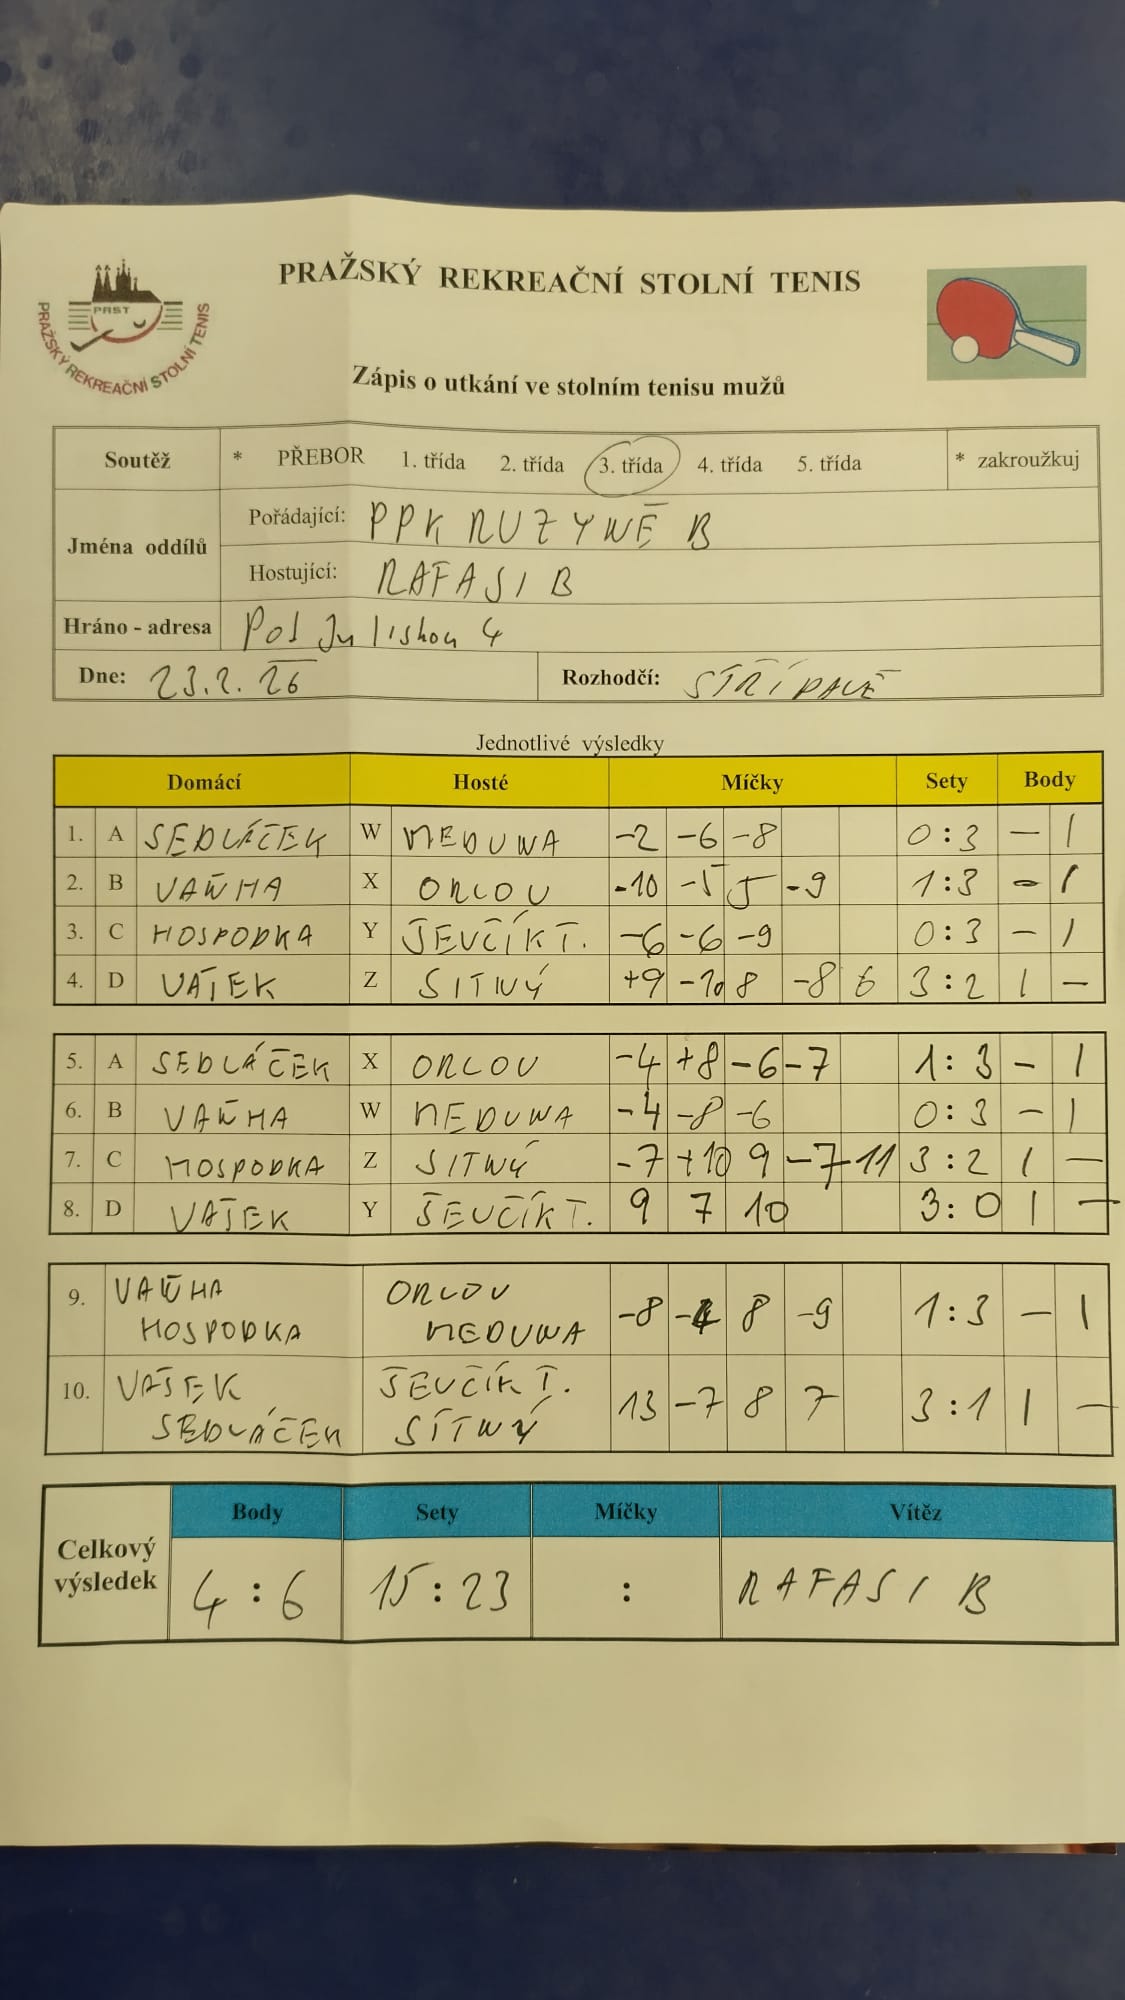 PRAŽSKÝ REKREAČNÍ STOLNÍ TENIS
PRST
PRAŽSKÝ REKREAČNÍ STOLNÍ TENIS
Zápis o utkání ve stolním tenisu mužů
Soutěž * PŘEBOR 1. třída 2. třída 3. třída 4. třída 5. třída * zakroužkuj
Jména oddílů
Pořádající: PPK RUZYNĚ B
Hostující: RAFASI B
Hráno - adresa Pod Juliskou 4
Dne: 23.2.26 Rozhodčí: STŘÍDAVĚ
Jednotlivé výsledky
Domácí Hosté Míčky Sety Body
1. A SEDLÁČEK W MEDUNA -2 -6 -8 0:3 - 1
2. B VAŇHA X ORLOV -10 -5 5 -9 1:3 - 1
3. C HOSPODKA Y ŠEVČÍK T. -6 -6 -9 0:3 - 1
4. D VAŠEK Z SITNÝ +9 -10 8 -8 6 3:2 1 -
5. A SEDLÁČEK X ORLOV -4 +8 -6 -7 1:3 - 1
6. B VAŇHA W MEDUNA -4 -8 -6 0:3 - 1
7. C HOSPODKA Z SITNÝ -7 +10 9 -7 11 3:2 1 -
8. D VAŠEK Y ŠEVČÍK T. 9 7 10 3:0 1 -
9. VAŇHA ORLOV
HOSPODKA MEDUNA -8 8 -9 1:3 - 1
10. VAŠEK ŠEVČÍK T.
SEDLÁČEK SÍTNÝ 13 -7 8 7 3:1 1 -
Celkový výsledek
Body Sety Míčky Vítěz
4:6 15:23 : RAFASI B